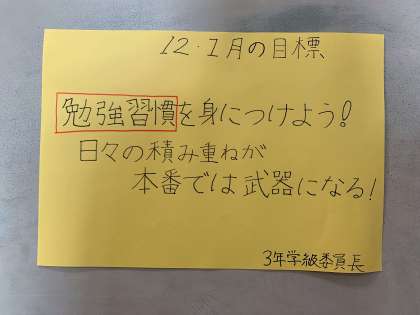 12・1月の目標
勉強習慣を身につけよう!
日々の積み重ねが
本番では武器になる!
3年学級委員長